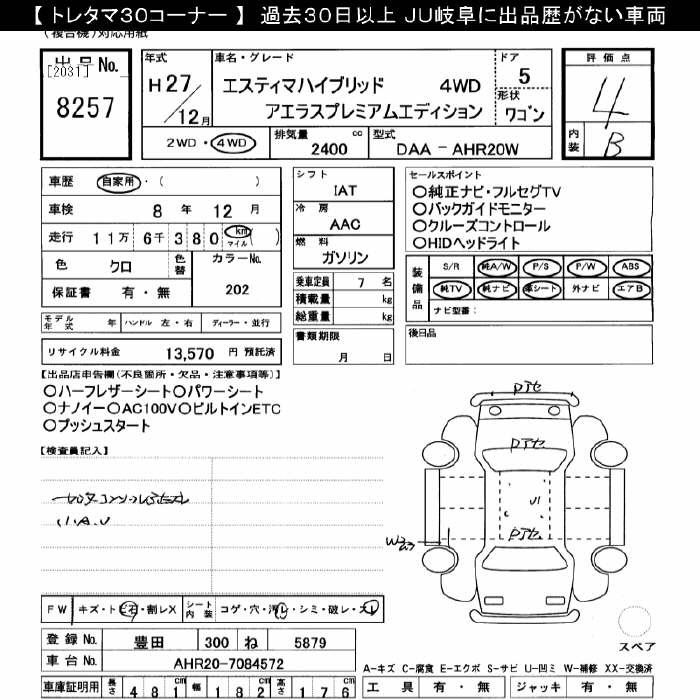 【 トレタマ30コーナー 】 過去30日以上 JU岐阜に出品歴がない車両
(複合機)対応用紙
出品No.
[2031]
8257
年式
H27/12月
車名・グレード
エスティマハイブリッド 4WD
アエラスプレミアムエディション
ドア
5
形状
ワゴン
2WD・4WD
排気量
2400 cc
型式
DAA-AHR20W
評価点
4
内装
B
車歴 自家用・( )
車検 8年 12月
走行 11万 6千 380 km マイル ( )
色 クロ
色替
カラーNo.
202
保証書 有・無
モデル年式 年 ハンドル 左・右 ディーラー・並行
リサイクル料金 13,570 円 預託済
シフト
IAT
冷房
AAC
燃料
ガソリン
乗車定員 7 名
積載量 kg
総重量 kg
書類期限
月 日
セールスポイント
○純正ナビ・フルセグTV
○バックガイドモニター
○クルーズコントロール
○HIDヘッドライト
装備品
S/R 純A/W P/S P/W ABS
純TV 純ナビ 革シート 外ナビ エアB
ナビ型番:
後日品
【出品店申告欄(不良箇所・欠品・注意事項等)】
○ハーフレザーシート○パワーシート
○ナノイー○AC100V○ビルトインETC
○プッシュスタート
【検査員記入】
小A.U
U1
W2
FW キズ・トビ石・割レX
シート内装 コゲ・穴・汚レ・シミ・破レ・スレ
登録No. 豊田 300 ね 5879
車台No. AHR20-7084572
車庫証明用 長さ 481cm 幅 182cm 高さ 176cm
スペア
A-キズ C-腐食 E-エクボ S-サビ U-凹ミ W-補修 XX-交換済
工具 有・無 ジャッキ 有・無